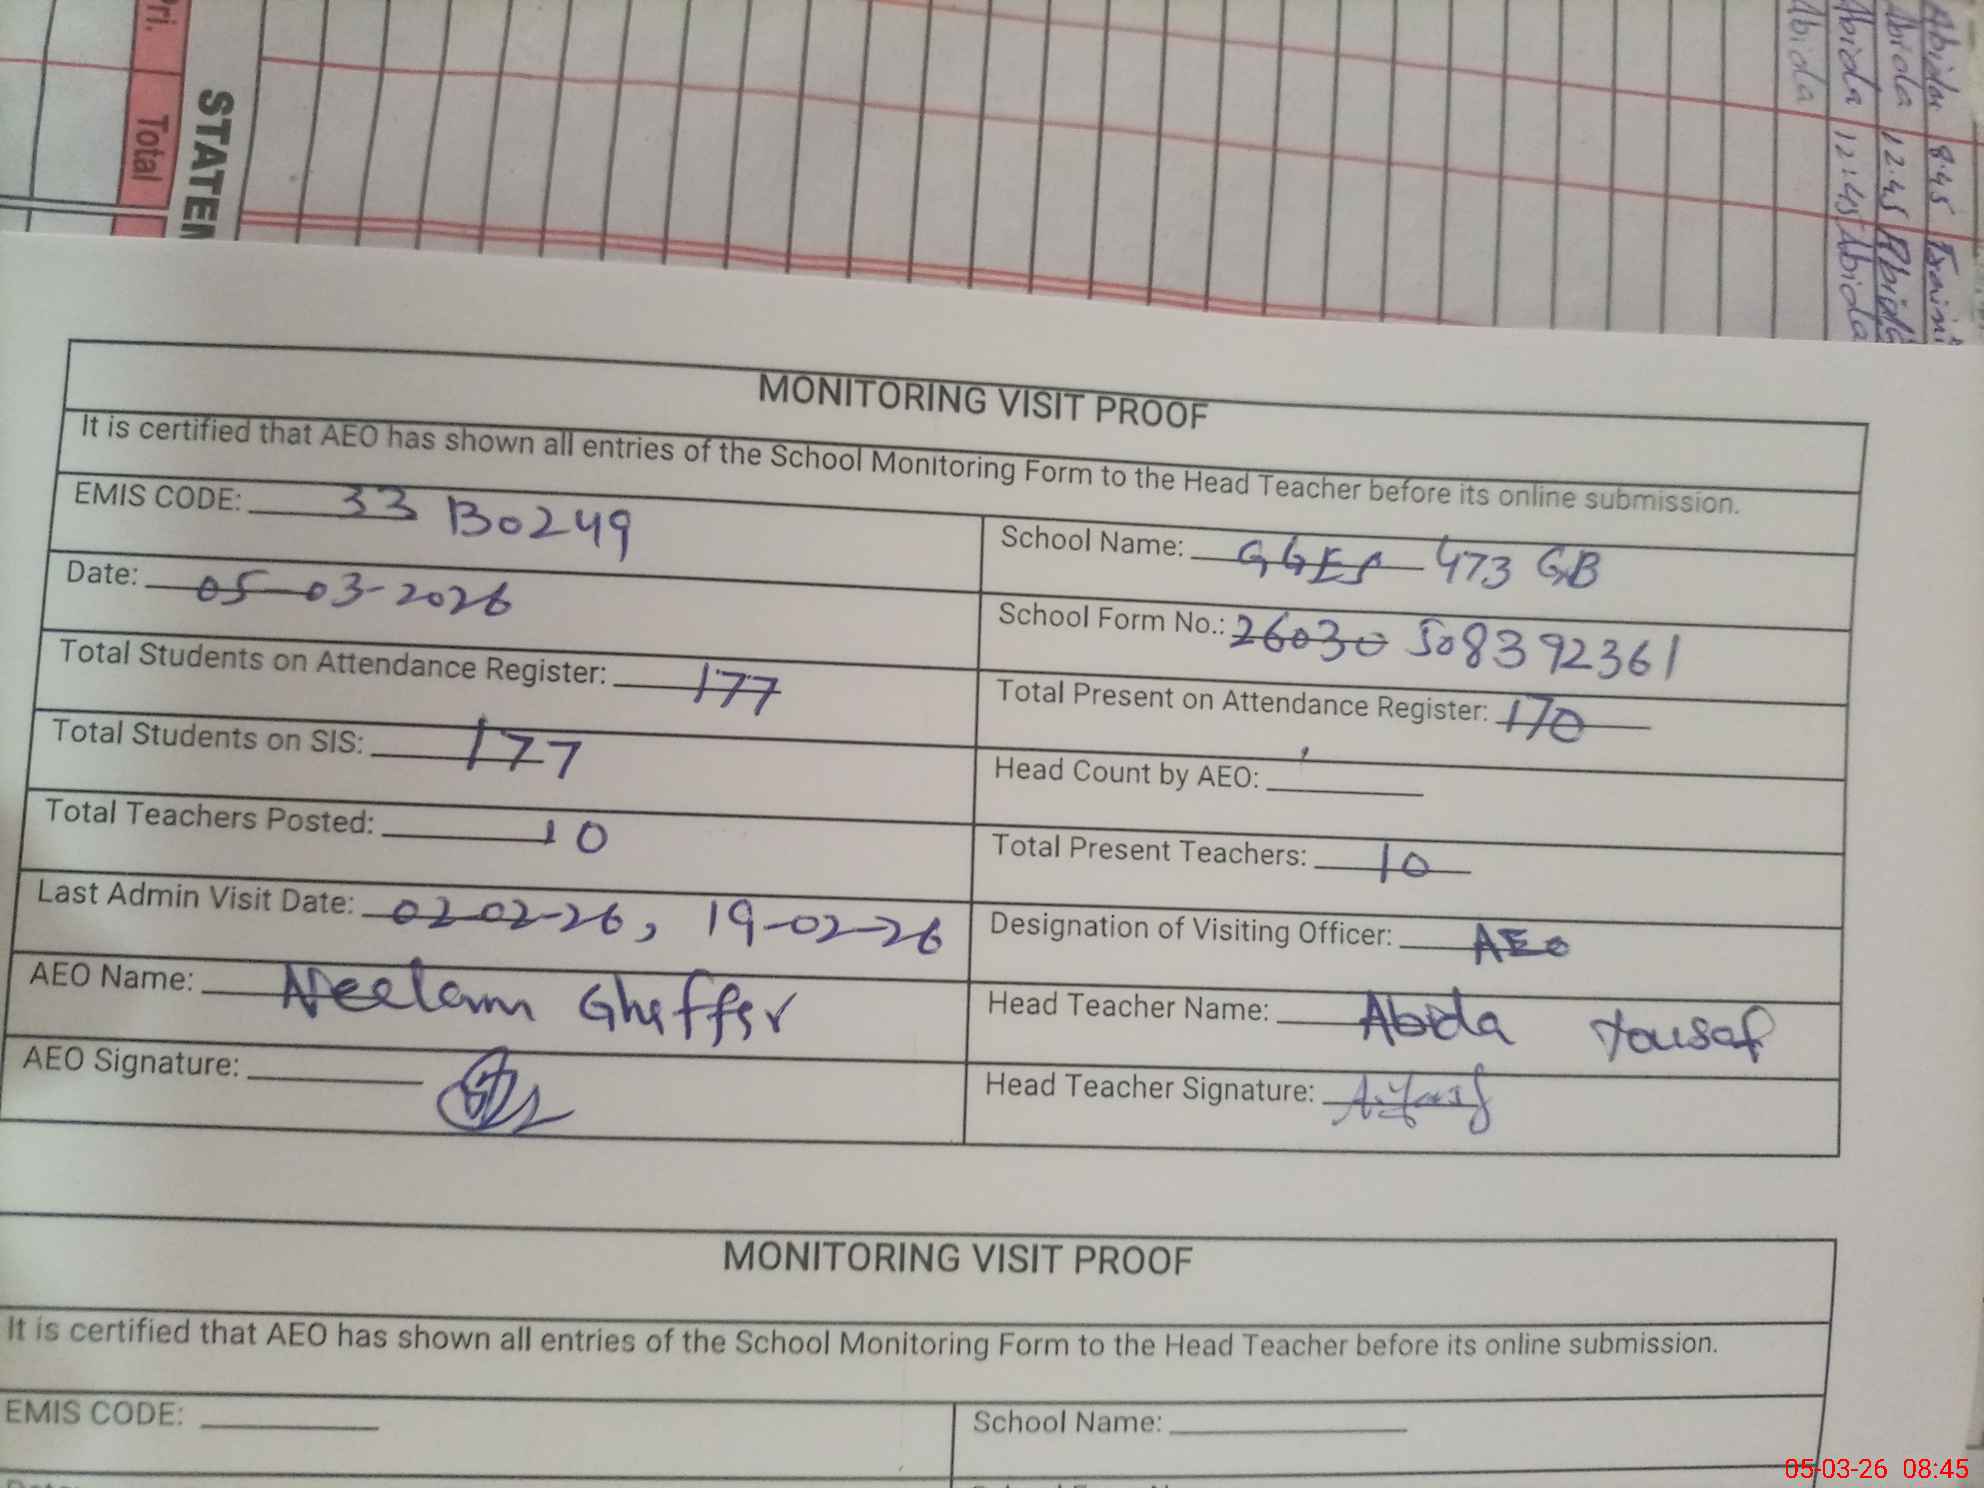 Pri. Total
STATEM
Abida 8:45 Traini
Abida 12:45 Abida
Abida 12:45 Abida
Abida
MONITORING VISIT PROOF
It is certified that AEO has shown all entries of the School Monitoring Form to the Head Teacher before its online submission.
EMIS CODE: 33 130249
School Name: GGES 473 GB
Date: 05-03-2026
School Form No.: 26030 508392361
Total Students on Attendance Register: 177
Total Present on Attendance Register: 170
Total Students on SIS: 177
Head Count by AEO:
Total Teachers Posted: 10
Total Present Teachers: 10
Last Admin Visit Date: 02-02-26, 19-02-26
Designation of Visiting Officer: AEO
AEO Name: Neelam Ghaffar
Head Teacher Name: Abida Yousaf
AEO Signature:
Head Teacher Signature: A.Yousaf
MONITORING VISIT PROOF
It is certified that AEO has shown all entries of the School Monitoring Form to the Head Teacher before its online submission.
EMIS CODE:
School Name:
05-03-26 08:45